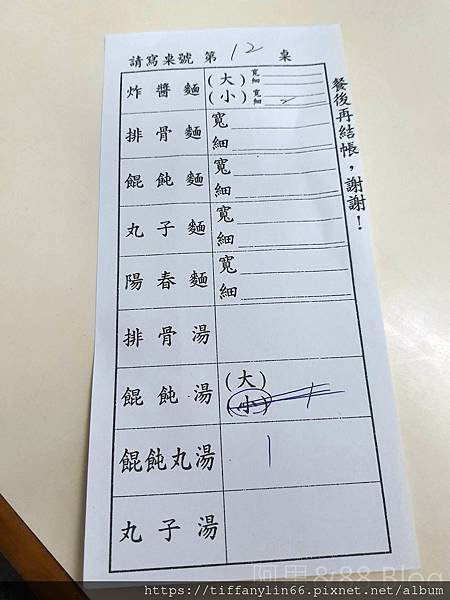 請寫桌號 第 12 桌
餐後再結帳，謝謝！
炸醬麵 (大) 寬 細
(小) 寬 細
排骨麵 寬
細
餛飩麵 寬
細
丸子麵 寬
細
陽春麵 寬
細
排骨湯
餛飩湯 (大)
(小) 1
餛飩丸湯 1
丸子湯
阿思&88 Blog
https://tiffanylin66.pixnet.net/album